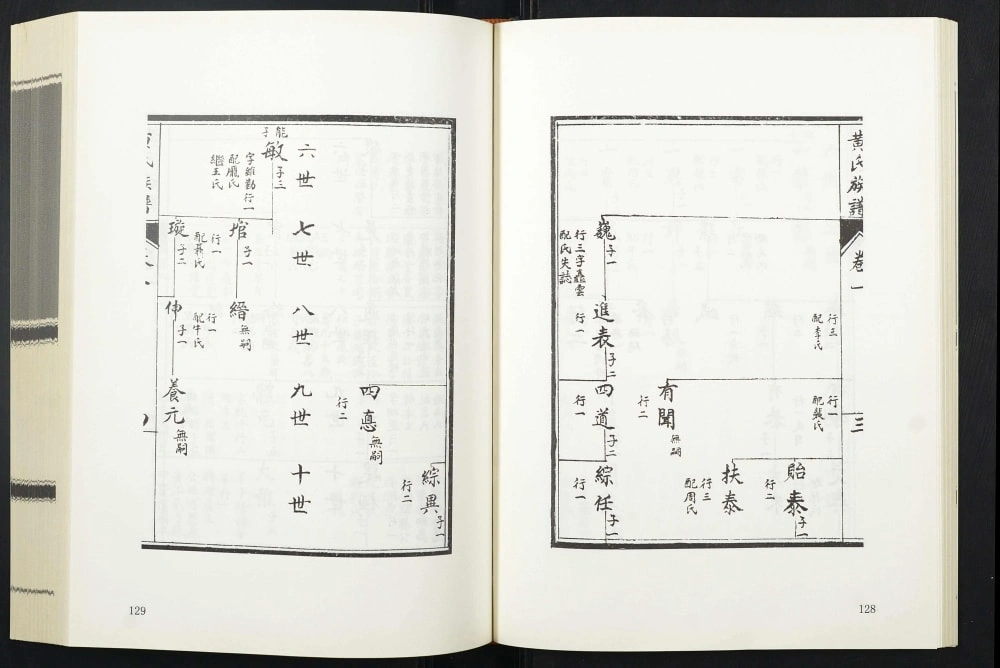 黃氏族譜
卷一
三
行三
配李氏
行一
配龔氏
貽泰
子一
行二
扶泰
行三
配周氏
有聞
無嗣
行二
巍
子一
行三字矗雲
配氏失誌
進表
子二
行一
四道
子二
行一
綜任
子一
行一
128
綜異
子一
行二
四惪
無嗣
行二
六世
七世
八世
九世
十世
能子
敏
子三
字維勤行一
配龐氏
繼王氏
琯
子一
行一
配蔣氏
縉
無嗣
行一
配牛氏
璇
子二
伸
子一
養元
無嗣
129